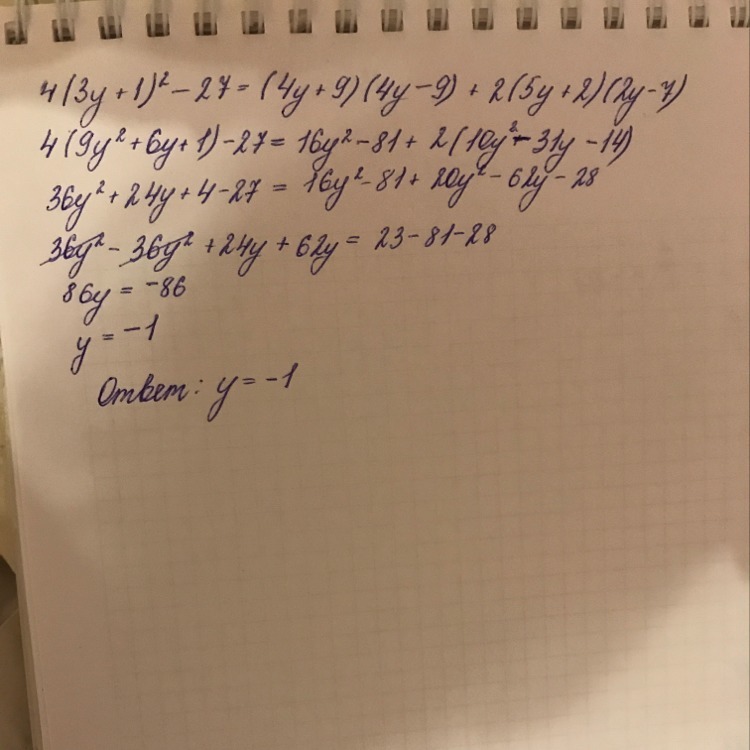 4(3y+1)² - 27 = (4y+9)(4y-9) + 2(5y+2)(2y-7)
4(9y²+6y+1) - 27 = 16y² - 81 + 2(10y² - 31y - 14)
36y² + 24y + 4 - 27 = 16y² - 81 + 20y² - 62y - 28
36y² - 36y² + 24y + 62y = 23 - 81 - 28
86y = -86
y = -1
Ответ: y = -1